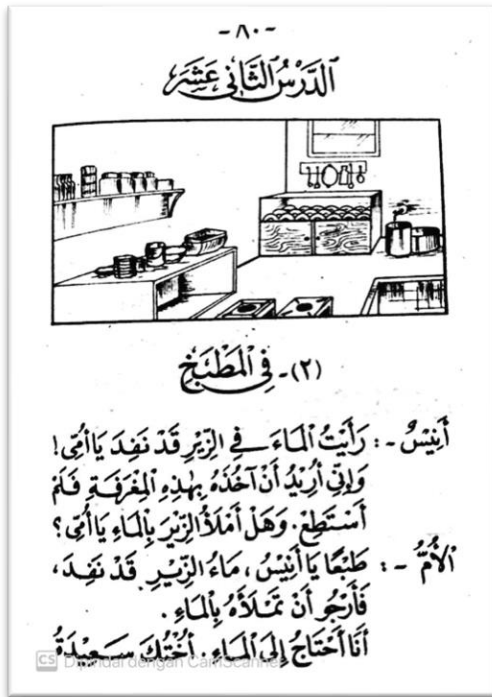 -٨٠-
اَلدَّرْسُ الثَّانِى عَشَرَ
(٢)- فِى الْمَطْبَخِ
أَنِيْسٌ -: رَأَيْتُ الْمَاءَ فِى الزِّيْرِ قَدْ نَفِدَ يَا أُمِّى!
وَإِنِّى أُرِيْدُ أَنْ آخُذَهُ بِهٰذِهِ الْمِغْرَفَةِ فَلَمْ
أَسْتَطِعْ. وَهَلْ أَمْلَأُ الزِّيْرَ بِالْمَاءِ يَا أُمِّى؟
اَلْأُمُّ -: طَبْعًا يَا أَنِيْسُ، مَاءُ الزِّيْرِ قَدْ نَفِدَ،
فَأَرْجُو أَنْ تَمْلَأَهُ بِالْمَاءِ.
أَنَا أَحْتَاجُ إِلَى الْمَاءِ. أُخْتُكَ سَعِيْدَةُ
CS Dipindai dengan CamScanner